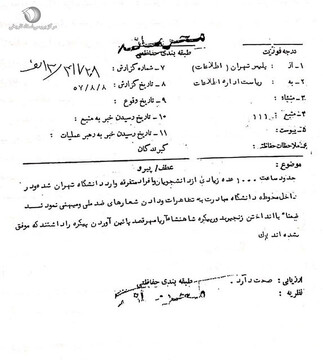 مرکز بررسی اسناد تاریخی
محرمانه
درجه فوریت
طبقه بندی حفاظتی
۱- از : پلیس تهران (اطلاعات)
۷- شماره گزارش :
۲- به : ریاست اداره اطلاعات
۸- تاریخ گزارش : ۵۷/۸/۸
۳- منشاء :
۹- تاریخ وقوع :
۴- منبع : ۱۱۱
۱۰- تاریخ رسیدن خبر به منبع :
۵- پیوست :
۱۱- تاریخ رسیدن خبر به رهبر عملیات :
۶- ملاحظات حفاظتی :
گیرندگان
موضوع :
عطف / پیرو
حدود ساعت ۱۰۰۰ عده زیادی از دانشجویان و افراد متفرقه وارد دانشگاه تهران شده و در
داخل محوطه دانشگاه مبادرت به تظاهرات و دادن شعارهای ضد ملی و میهنی نمودند
ضمناً با انداختن زنجیر در پیکره شاهنشاه آریامهر قصد پائین آوردن پیکره را داشتند که موفق
نشده اند
ارزیابی : صحت دارد .
طبقه بندی حفاظتی
نظریه :